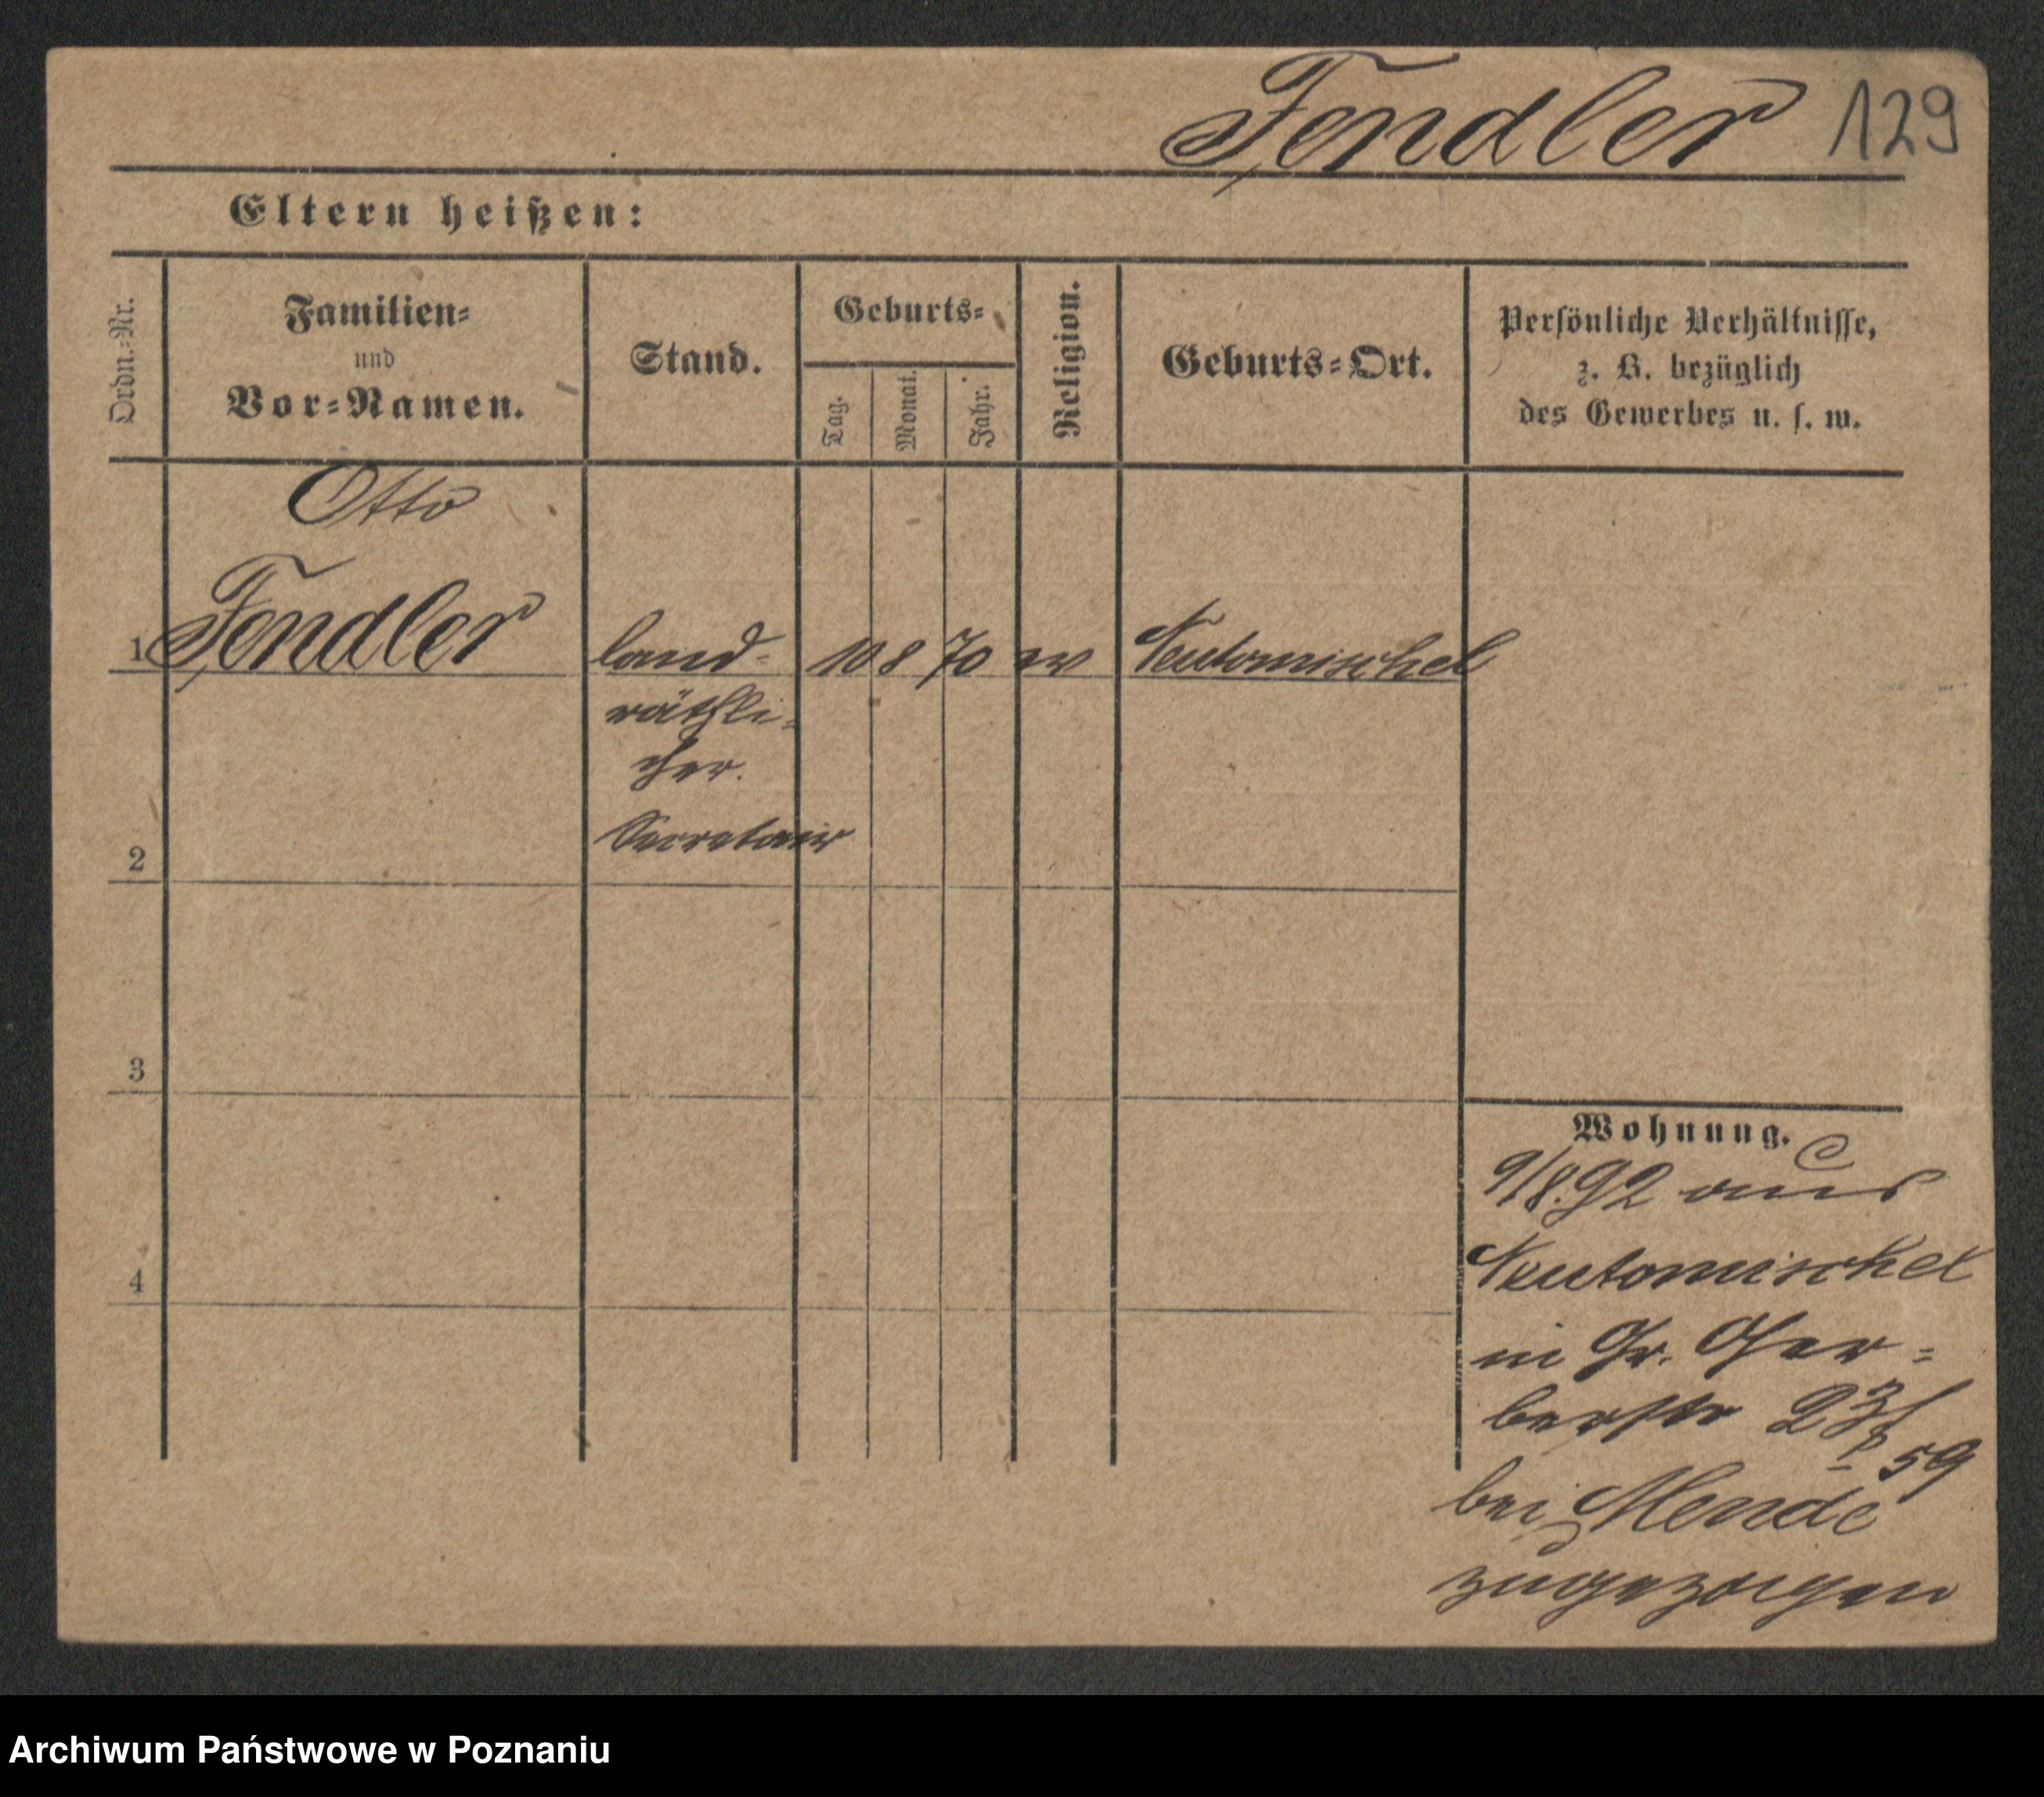 Fendler 129
Eltern heißen:
Ordn.-Nr.
Familien-
und
Vor-Namen.
Stand.
Geburts-
Tag.
Monat.
Jahr.
Religion.
Geburts-Ort.
Persönliche Verhältnisse,
z. B. bezüglich
des Gewerbes u. s. w.
Otto
1 Fendler land- 10 8 70 ev Neutomischel
räthli-
cher.
Secretair
2
3
4
Wohnung.
9/8.92 aus
Neutomischel
in Gr. Ger-
berstr 23/
59
bei Mende
zugezogen
Archiwum Państwowe w Poznaniu